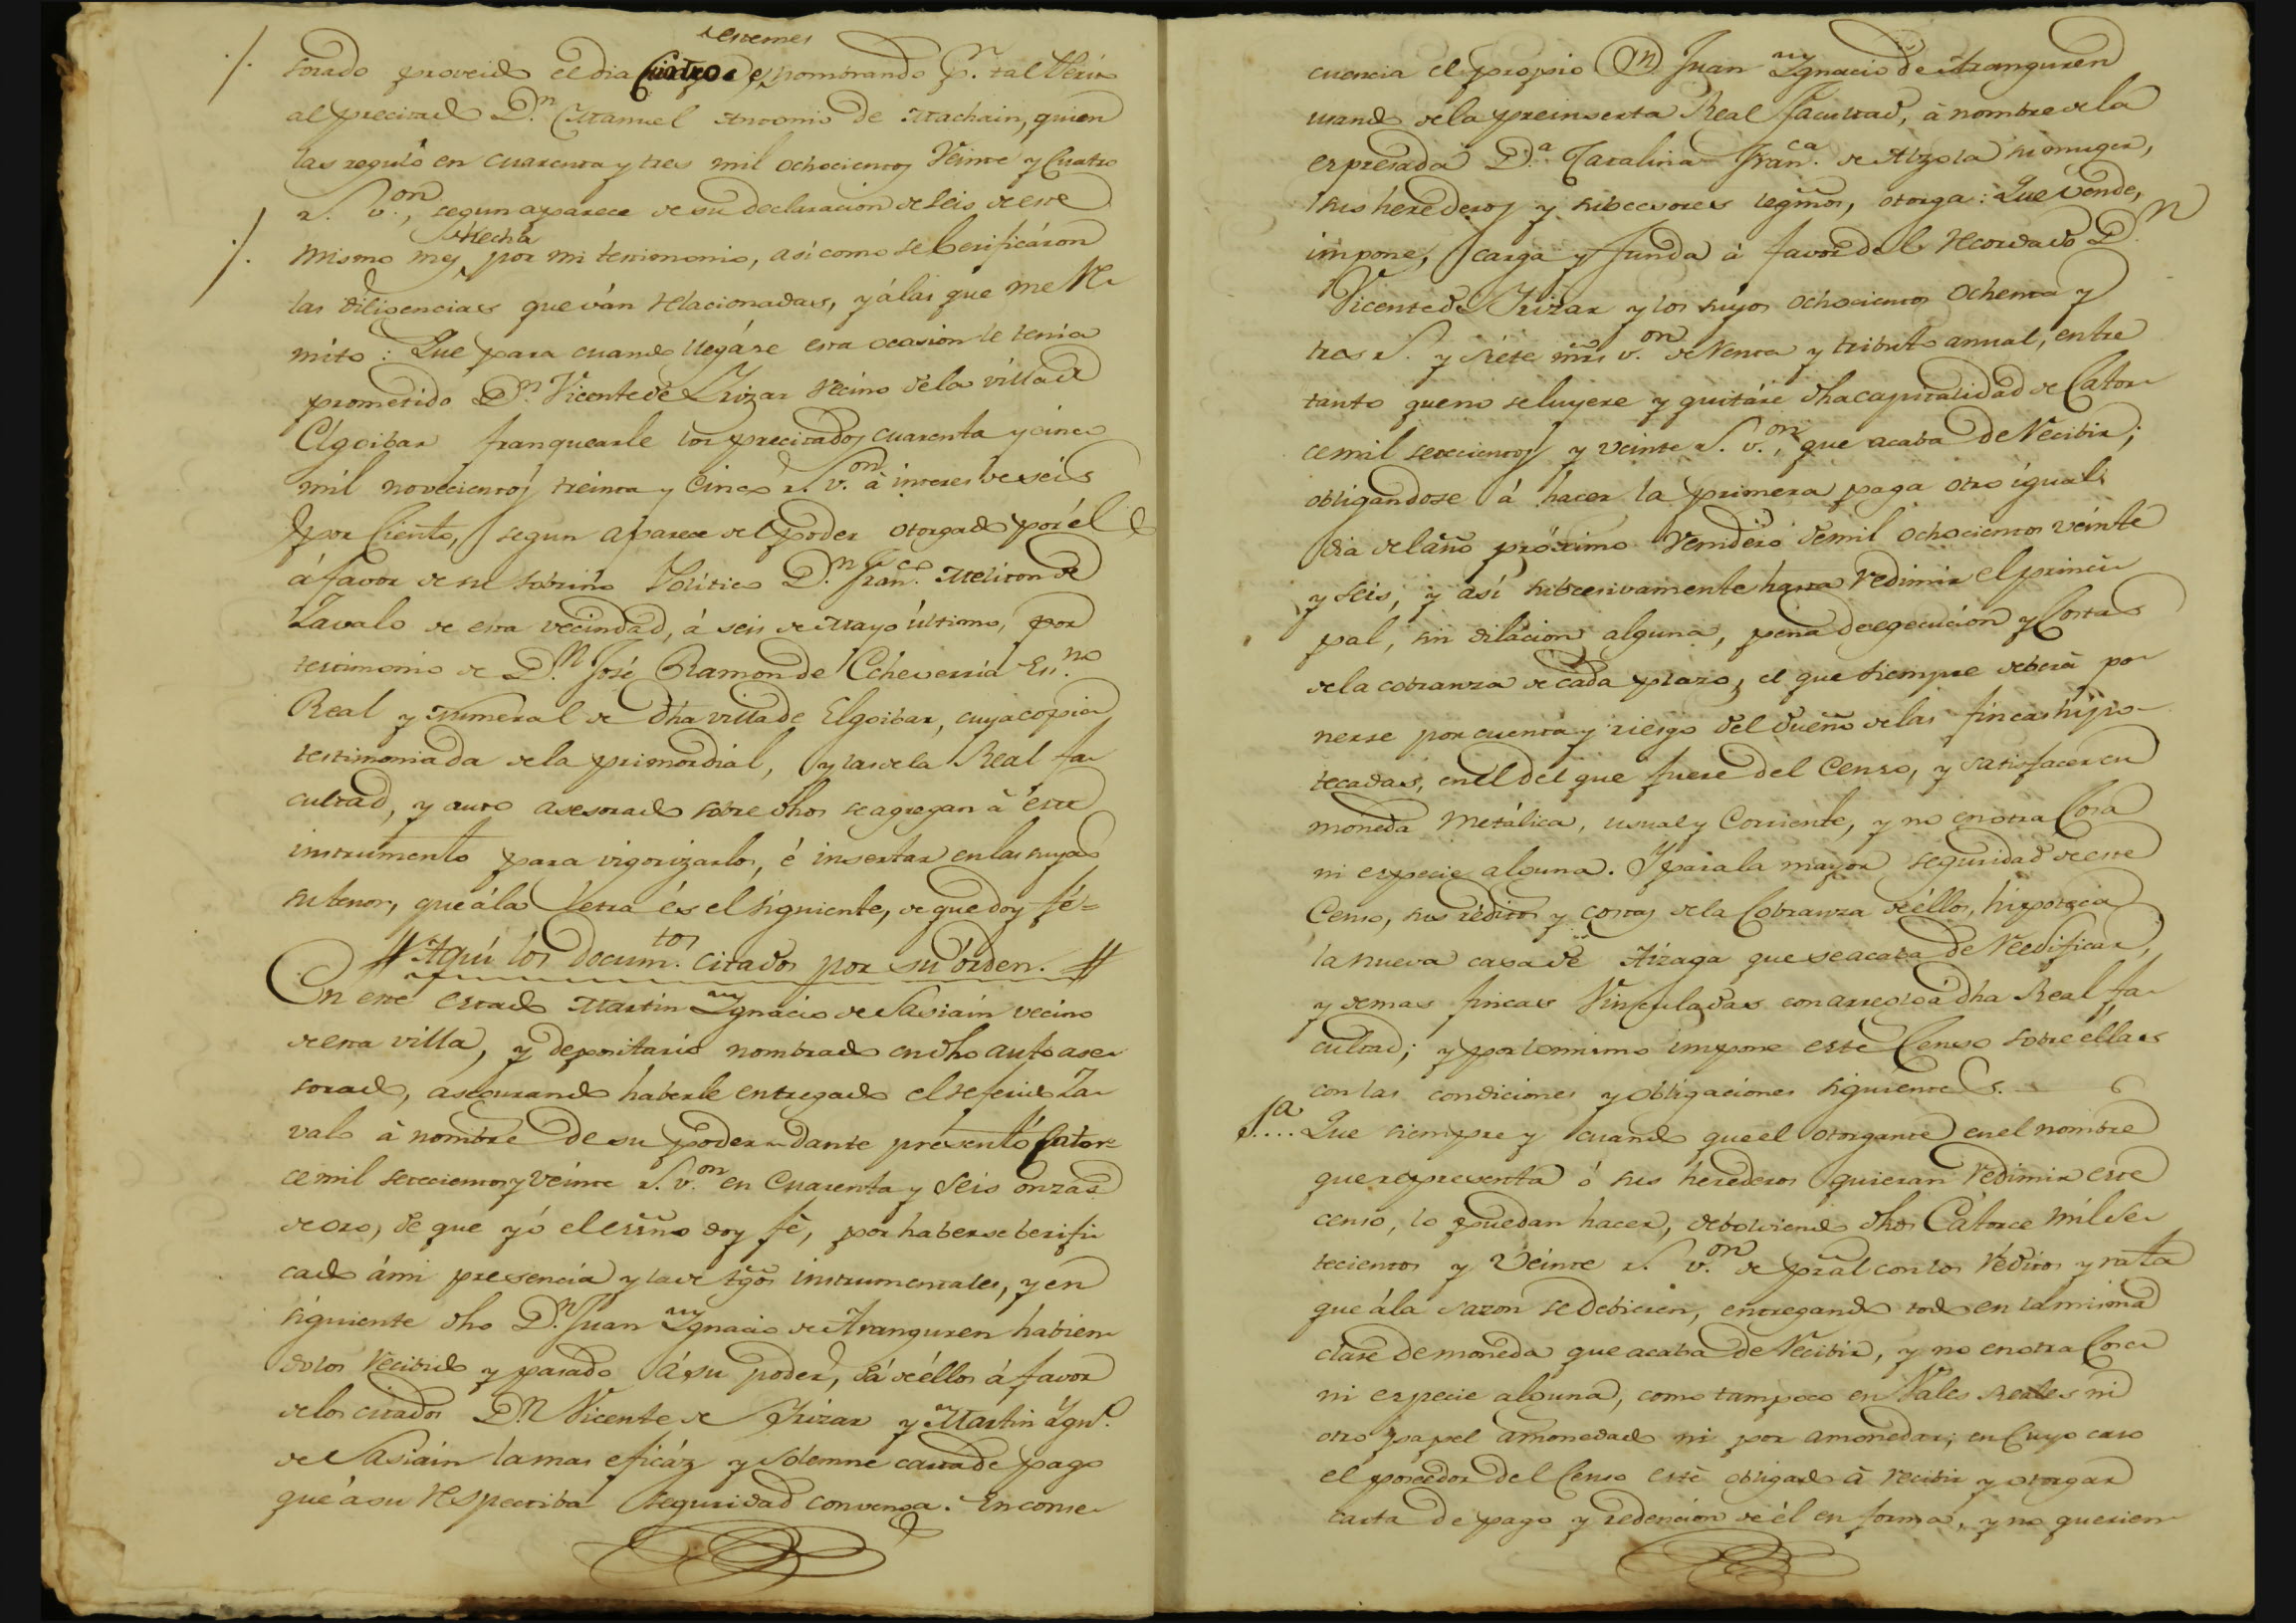 este mes
sorado proveido el dia Cuatro de, nombrando pr. tal Perito
al precitado Dn. Manuel Antonio de Machain, quien
las reguló en cuarenta y tres mil ochocientos Veinte y Cuatro
rs. von., segun aparece de su declaracion de seis de este
hecha
mismo mes, por mi testimonio, así como se berificáron
las diligencias que ván relacionadas, y á las que me re-
mito: Que para cuando llegáre esta ocasion le tenia
prometido Dn. Vicente de Yrizar vecino de la villa de
Elgoibar franquearle los precitados cuarenta y cinco
mil novecientos treinta y Cinco rs. von. á interes de séis
por Ciento, segun aparece del poder otorgado por él
á favor de su sobrino Politico Dn. Franco. Meliton de
Zavalo de esta vecindad, á seis de Mayo último, por
testimonio de Dn. José Ramon de Echeverria Esno.
Real y Numeral de dha villa de Elgoibar, cuya copia
testimoniada de la primordial, y las de la Real fa-
cultad, y auto asesorado sobre dhos se agregan á este
instrumento para vigorizarlo, é insertar en las suyas
su tenor, que á la letra és el siguiente, de que doy fé=
# Aquí los Documtos. citados por su órden. #
En este estado Martin Ygnacio de Sasiain vecino
de esta villa, y depositario nombrado en dho auto ase-
sorado, asegurando haberle entregado el referido Za-
valo á nombre de su poder-dante presentó Cator-
ce mil setecientos y veinte rs. von. en Cuarenta y Seis onzas
de oro, de que yó el essno doy fé, por haberse berifi-
cado á mi presencia y la de tgos instrumentales, y en
siguiente dho Dn. Juan Ygnacio de Aranguren habien-
dolos recibido y pasado á su poder, dá de éllos á favor
de los citados Dn. Vicente de Yrizar y Martin Ygno.
de Sasiain la mas eficáz y solemne carta de pago
que á su respectiba seguridad convenga. En conse-
cuencia el propio Dn. Juan Ygnacio de Aranguren
usando de la preinserta Real facultad, á nombre de la
expresada Da. Catalina Franca. de Alzola su muger,
sus herederos y subcesores legmos, otorga: Que vende,
impone, carga y funda á favor del recordado Dn.
Vicente de Yrizar y los suyos ochocientos ochenta y
tres rs. y siete mrs von. de renta y tributo annual, entre
tanto que no se luyere y quitáre dha capitalidad de Cator-
ce mil setecientos y veinte rs. von., que acaba de recibir;
obligandose á hacer la primera paga otro igual
dia del año próximo venidero de mil ochocientos veinte
y seis, y así subcesivamente hasta redimir el princi-
pal, sin dilacion alguna, pena de egecucion y Costas
de la cobranza de cada plazo, el que siempre deberá po-
nerse por cuenta y riesgo del dueño de las fincas hipo-
tecadas, en el del que fuere del Censo, y satisfacer en
moneda Metálica, usual y Corriente, y no en otra Cosa
ni especie alguna. Y para la mayor seguridad de este
Censo, sus réditos y costas de la Cobranza de éllos, hipotéca
la nueva casa de Aizaga que se acaba de reedificar,
y demas fincas Vinculadas con arreglo á dha Real fa-
cultad; y por lo mismo impone este Censo sobre éllas
con las condiciones y obligaciones siguientes.
1a .... Que siempre y cuando que el otorgante en el nombre
que representa ó sus herederos quieran redimir este
censo, lo puedan hacer, debolviendo dhos Catorce mil se-
tecientos y veinte rs. von. de pral con los réditos y rata
que á la sazon se debieren, entregando todo en la misma
clase de moneda que acaba de recibir, y no en otra Cosa
ni especie alguna, como tampoco en Vales Reales ni
otro papel amonedado ni por amonedar; en cuyo caso
el poseedor del Censo esté obligado á recibir y otorgar
carta de pago y redencion de él en forma, y no querien-